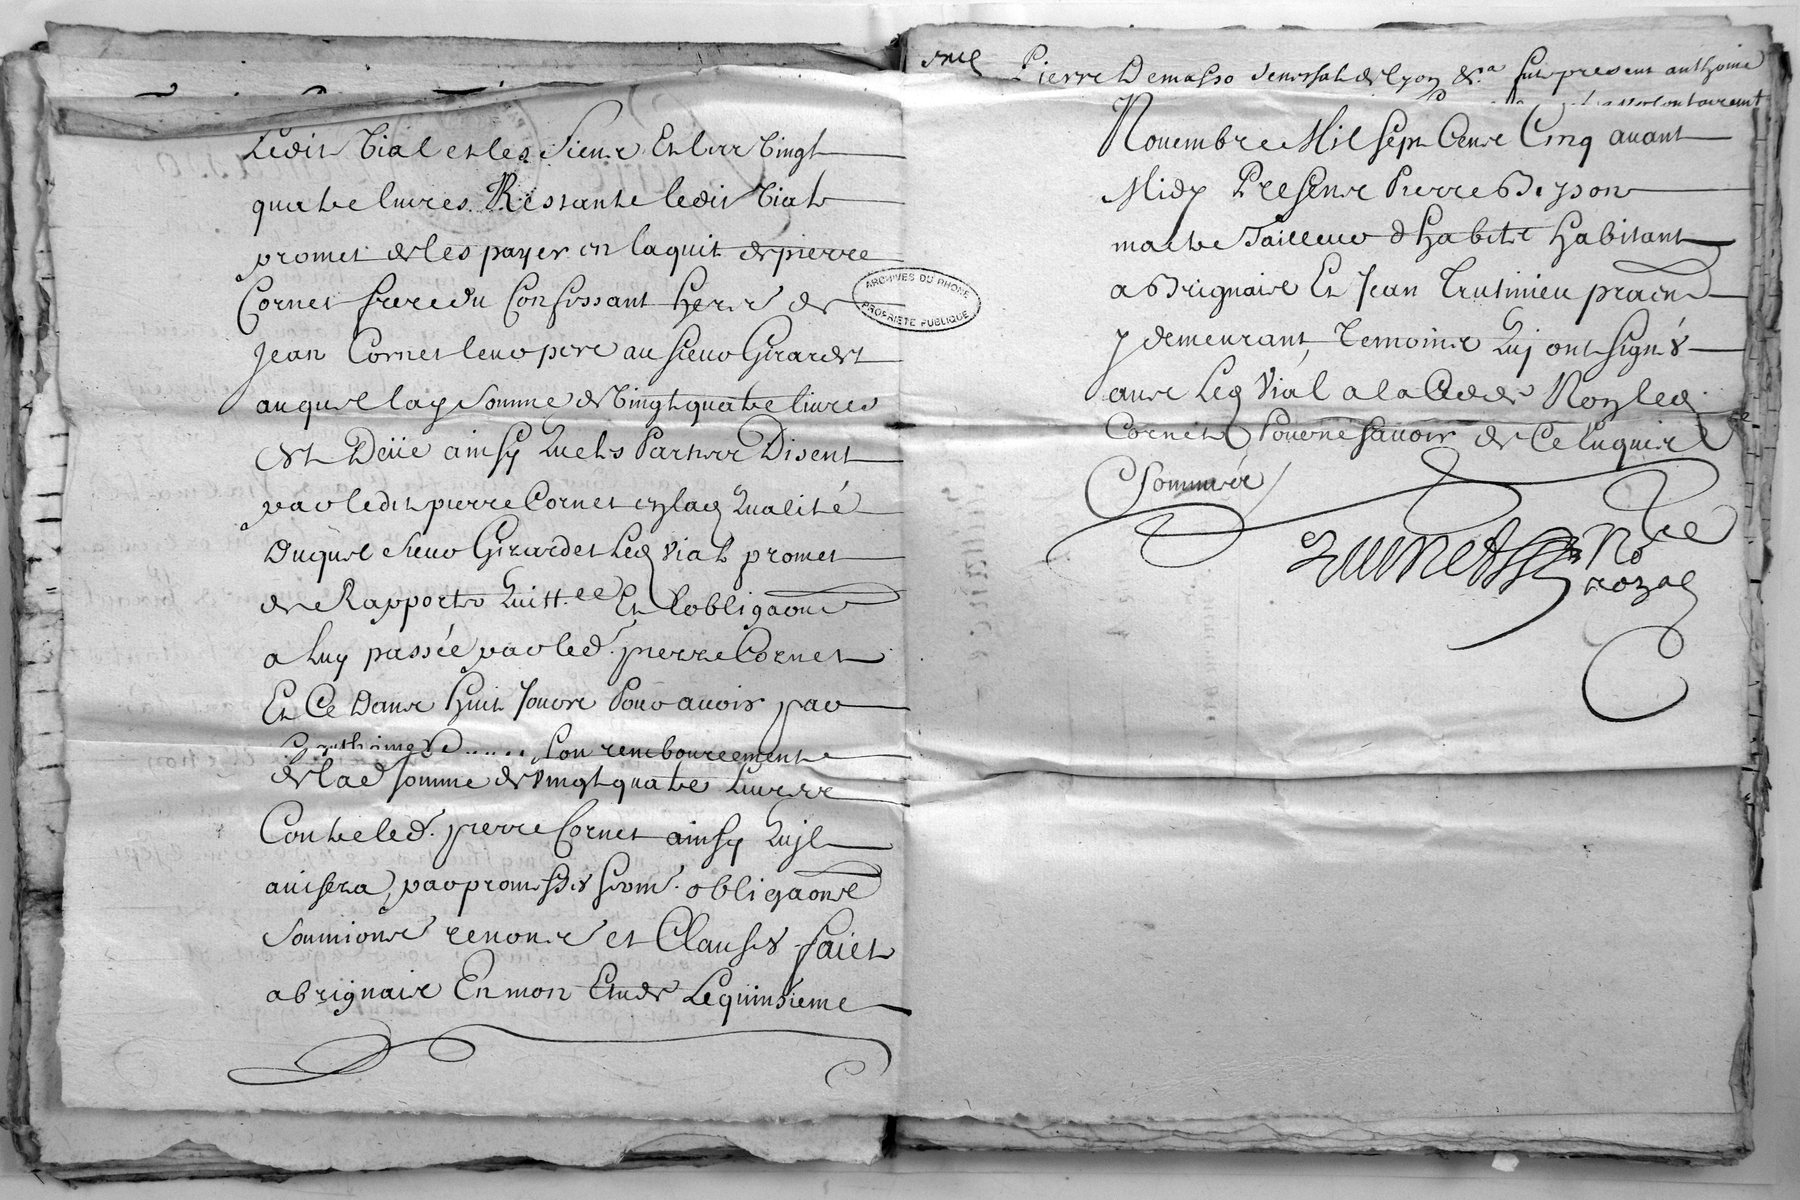 Ledit Vial et les Siens Et les Vingt
quatre livres Restante ledit Vial
promet de les payer en laquit de pierre
Cornet frere du Confessant herr de
Jean Cornet leur pere au sieur Girardet
auquel lad somme de Vingt quatre livres
est Deüe ainsy Que les Parties Disent
par ledit pierre Cornet en lad Qualité
Duquel sieur Girardet Led Vial promet
de Rapporter Quitt.ce Et lobligaons
a luy passée par led. pierre Cornet
Et Ce Dans huit Jours Pour avoir par
son remboursement
de lad somme de vingt quatre Livres
Contre led. pierre Cornet ainsy Quil
avisera, par promesses serm. obligaons
soumions renons et Clauses faict
a brignais En mon Etude Le quinsieme
ARCHIVES DU RHONE
PROPRIETE PUBLIQUE
Pierre Demasso Seneschal de Lyon &.a fut present anthoine
Novembre Mil Sept Cens Cinq avant
Midy Presens Pierre
maitre Tailleur dhabits habitant
a Brignais Et Jean pratn
y demeurant, Temoins Quj ont signé
avec Led Vial a la Cede Non led
Cornet Pour ne savoir de Ce Enquis
Sommé
No.re
rozal